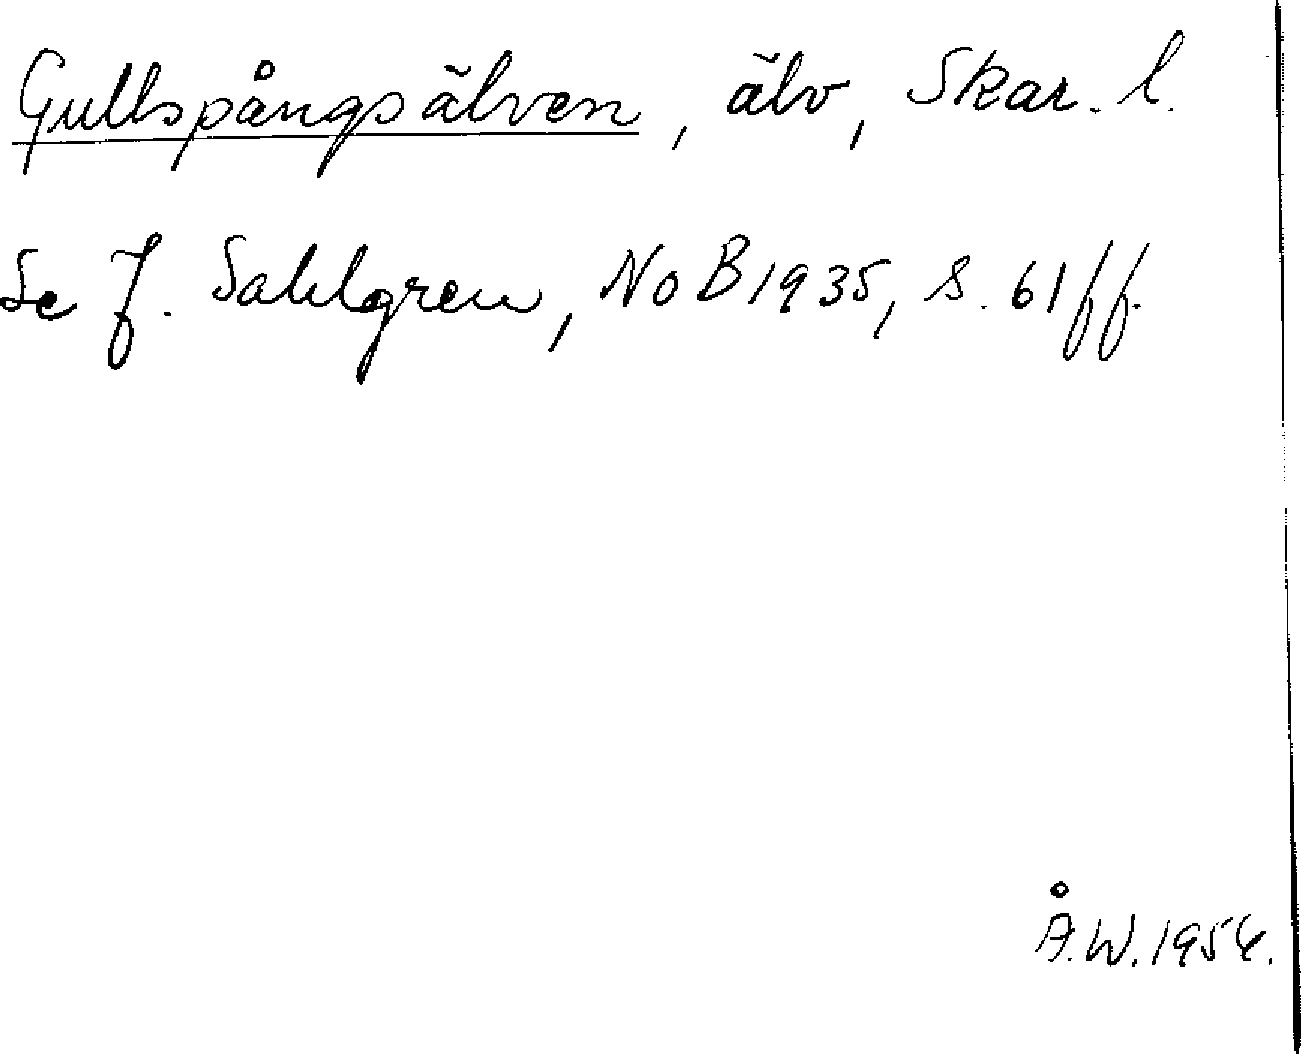 Gullspångsälven, älv, Skar. l.
Se J. Sahlgren, NoB 1935, s. 61 ff.
Å.W. 1956.